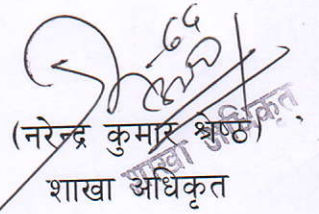 (नरेन्द्र कुमार श्रेष्ठ)
शाखा अधिकृत
शाखा अधिकृत